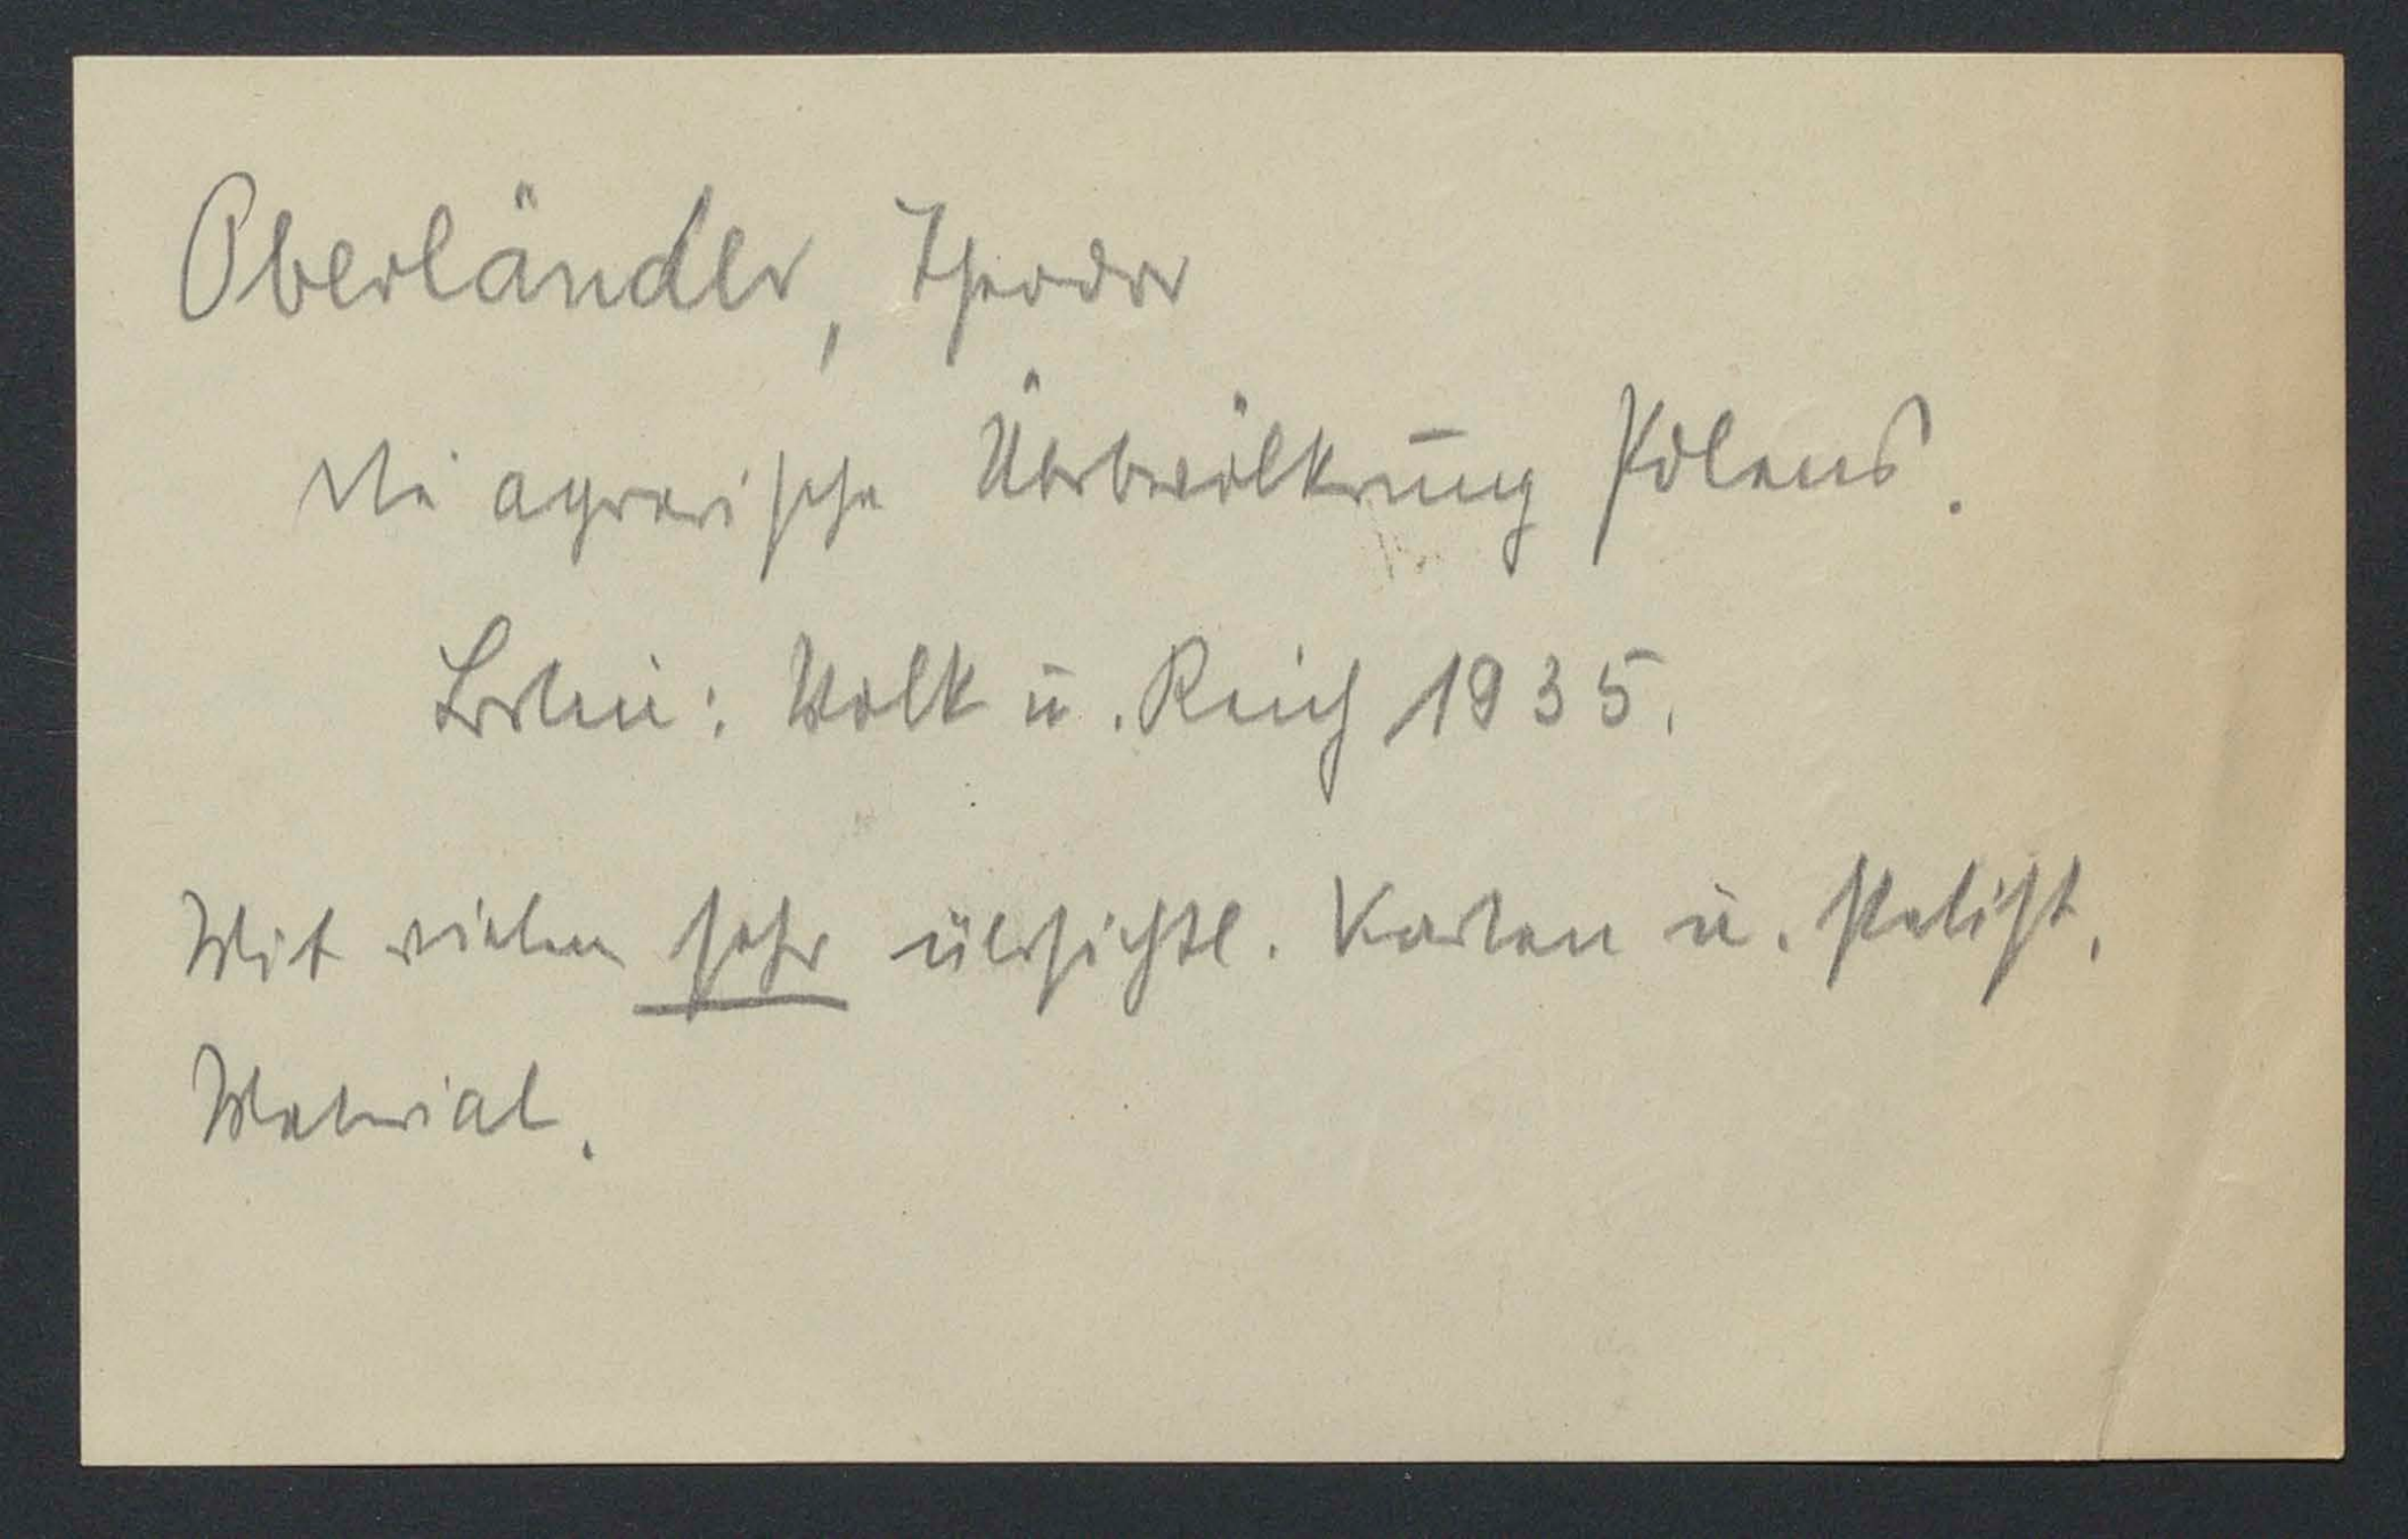 Oberländer, Theodor
Die agrarische Überbevölkerung Polens.
Berlin: Volk u. Reich 1935.
Mit vielen sehr übersichtl. Karten u. statist.
Material.